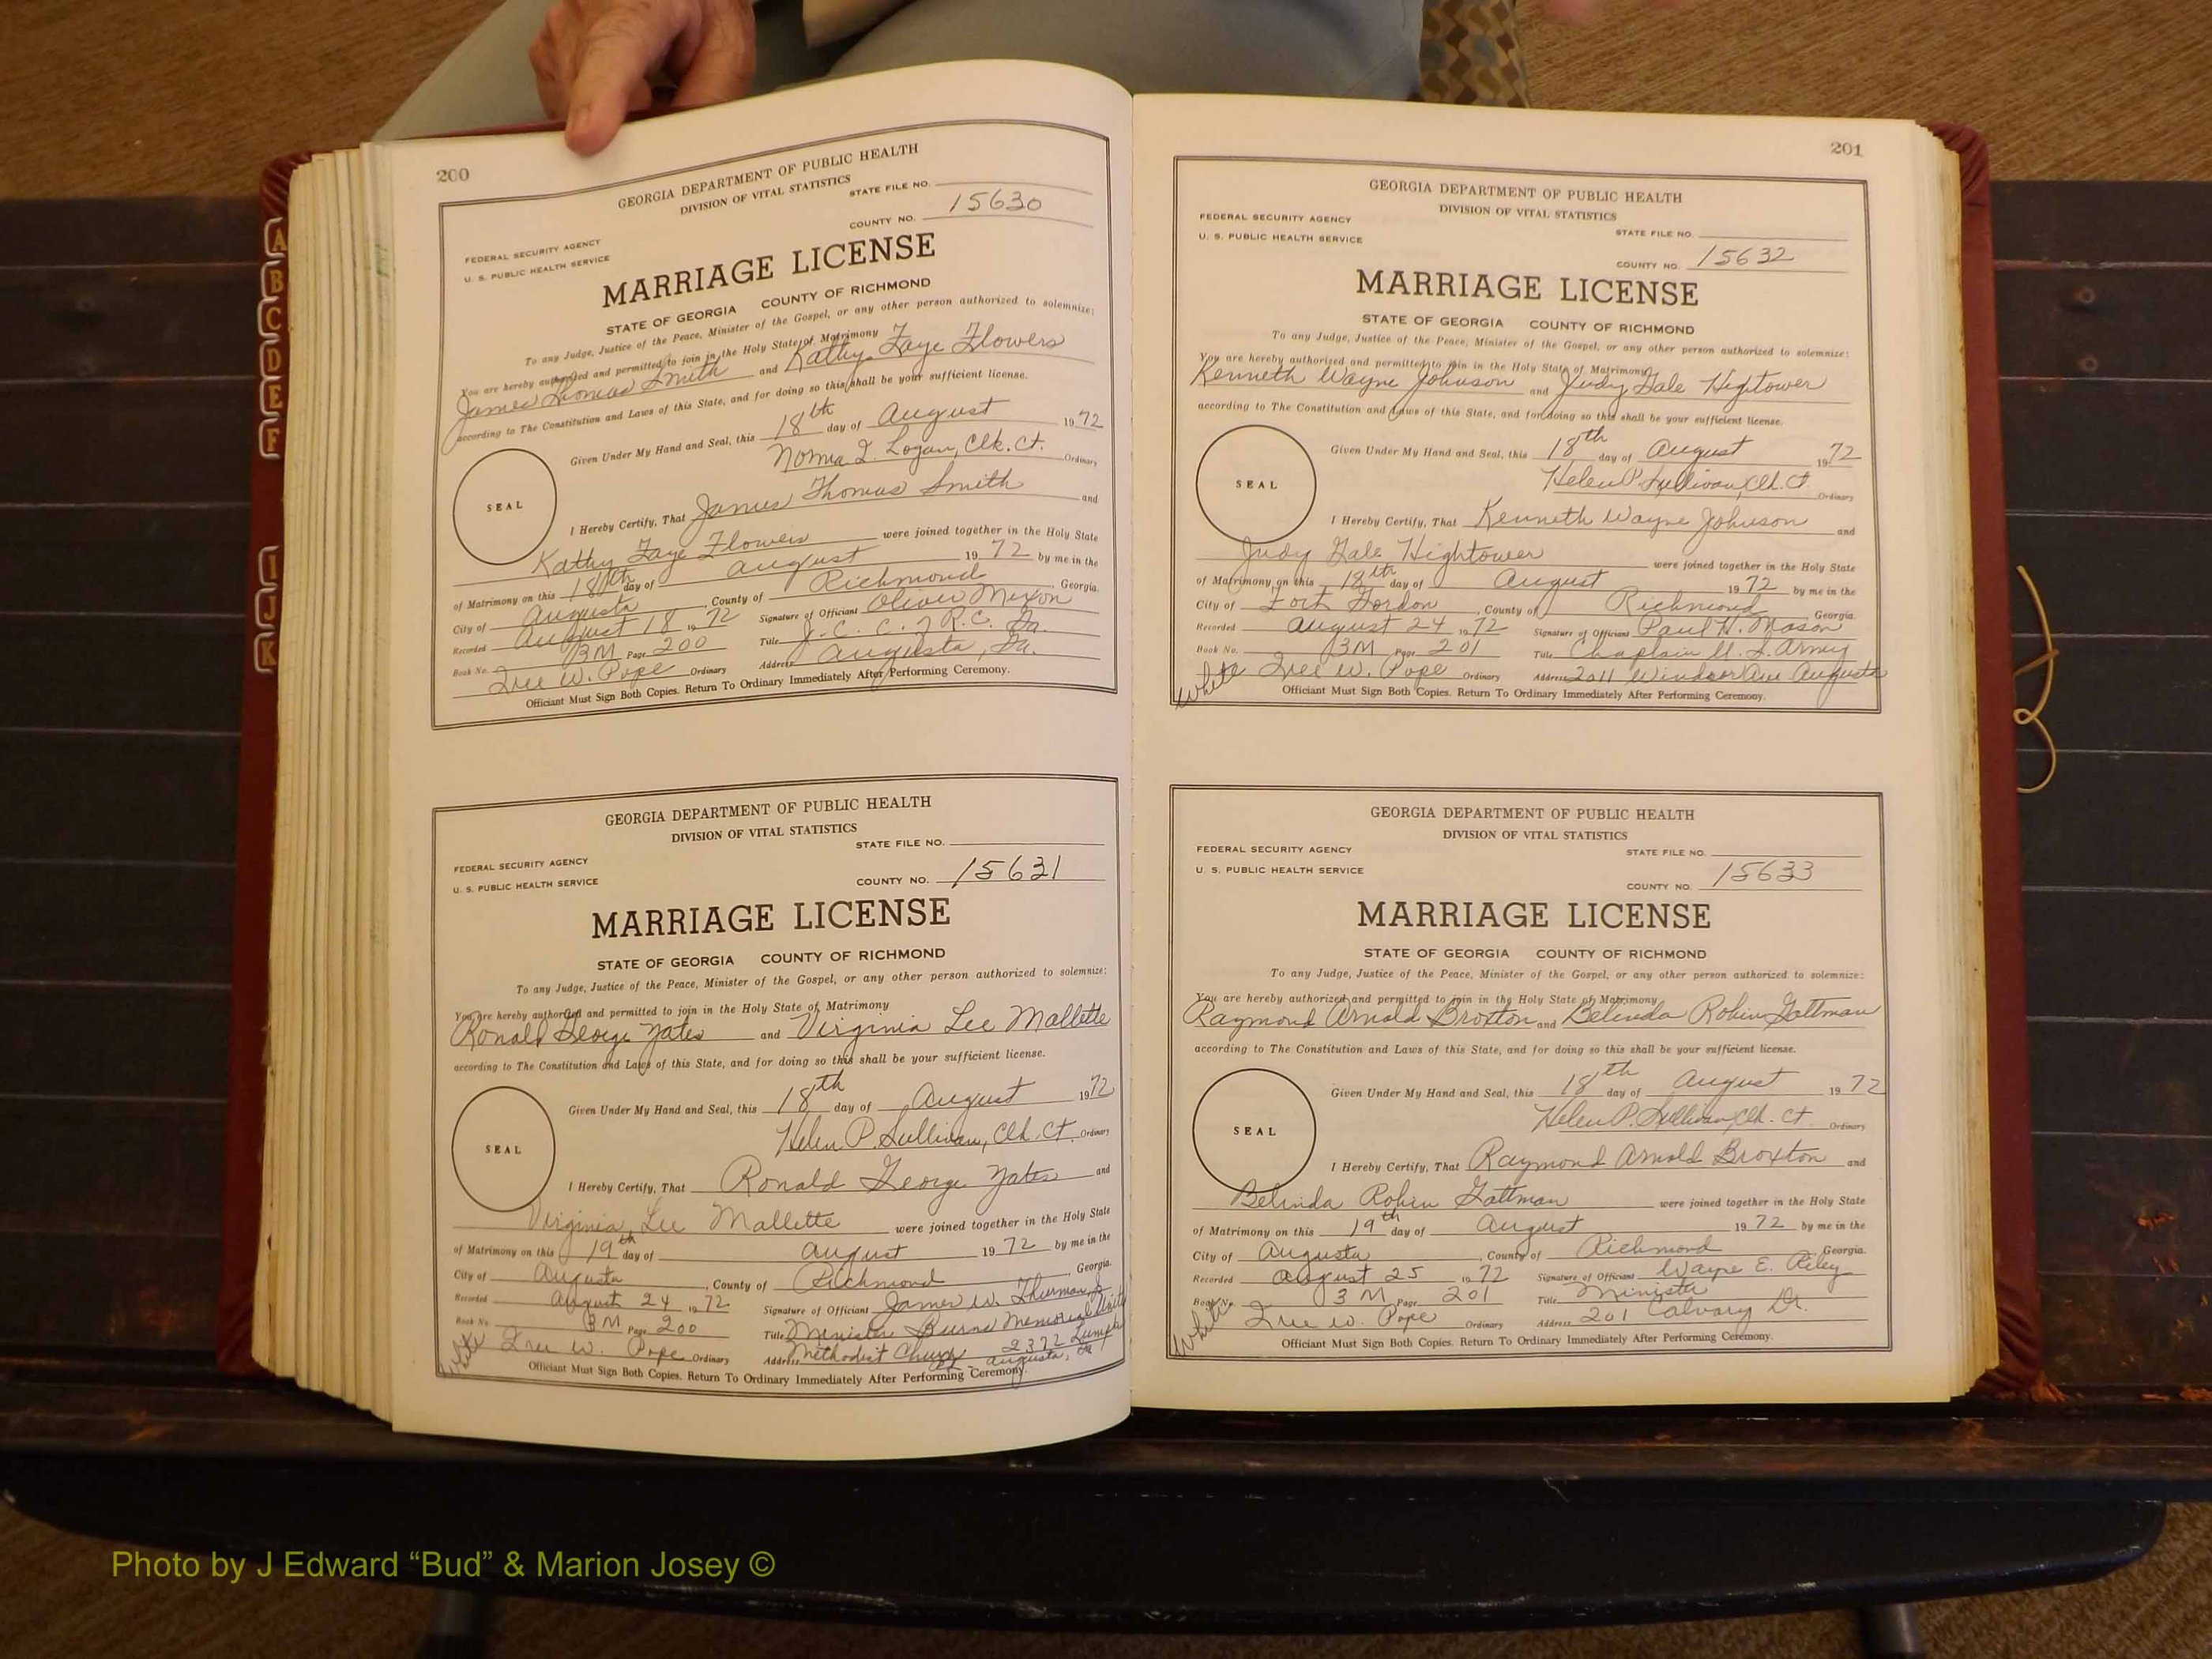 200
GEORGIA DEPARTMENT OF PUBLIC HEALTH
DIVISION OF VITAL STATISTICS
STATE FILE NO.
COUNTY NO. 15630
FEDERAL SECURITY AGENCY
U. S. PUBLIC HEALTH SERVICE
MARRIAGE LICENSE
STATE OF GEORGIA COUNTY OF RICHMOND
To any Judge, Justice of the Peace, Minister of the Gospel, or any other person authorized to solemnize:
You are hereby authorized and permitted to join in the Holy State of Matrimony
James Thomas Smith and Kathy Faye Flowers
according to The Constitution and Laws of this State, and for doing so this shall be your sufficient license.
Given Under My Hand and Seal, this 18th day of August 1972
Norma L. Logan, Clk. Ct. Ordinary
SEAL
I Hereby Certify, That James Thomas Smith and
Kathy Faye Flowers were joined together in the Holy State
of Matrimony on this 18th day of August 1972 by me in the
City of Augusta, County of Richmond, Georgia.
Recorded August 18 1972 Signature of Officiant Oliver Mixon
Book No. 3M Page 200 Title J.C.C. of R.C. Ga.
Ordinary Address Augusta, Ga.
W. Pope
Officiant Must Sign Both Copies. Return To Ordinary Immediately After Performing Ceremony.
GEORGIA DEPARTMENT OF PUBLIC HEALTH
DIVISION OF VITAL STATISTICS
STATE FILE NO.
FEDERAL SECURITY AGENCY
U. S. PUBLIC HEALTH SERVICE
COUNTY NO. 15631
MARRIAGE LICENSE
STATE OF GEORGIA COUNTY OF RICHMOND
To any Judge, Justice of the Peace, Minister of the Gospel, or any other person authorized to solemnize:
You are hereby authorized and permitted to join in the Holy State of Matrimony
Ronald George Yates and Virginia Lee Mallette
according to The Constitution and Laws of this State, and for doing so this shall be your sufficient license.
Given Under My Hand and Seal, this 18th day of August 1972
Helen P. Sullivan, Clk. Ct. Ordinary
SEAL
I Hereby Certify, That Ronald George Yates and
Virginia Lee Mallette were joined together in the Holy State
of Matrimony on this 19th day of August 1972 by me in the
City of Augusta, County of Richmond, Georgia.
Recorded August 24 1972 Signature of Officiant James W. Thurman, Jr
Book No. 3M Page 200 Title Minister Burns Memorial United
White W. Pope Ordinary Address Methodist Church 2372
Augusta, Ga
Officiant Must Sign Both Copies. Return To Ordinary Immediately After Performing Ceremony.
201
GEORGIA DEPARTMENT OF PUBLIC HEALTH
DIVISION OF VITAL STATISTICS
FEDERAL SECURITY AGENCY
U. S. PUBLIC HEALTH SERVICE
STATE FILE NO.
COUNTY NO. 15632
MARRIAGE LICENSE
STATE OF GEORGIA COUNTY OF RICHMOND
To any Judge, Justice of the Peace, Minister of the Gospel, or any other person authorized to solemnize:
You are hereby authorized and permitted to join in the Holy State of Matrimony
Kenneth Wayne Johnson and Judy Gale Hightower
according to The Constitution and Laws of this State, and for doing so this shall be your sufficient license.
Given Under My Hand and Seal, this 18th day of August 1972
Helen P. Sullivan, Clk. Ct. Ordinary
SEAL
I Hereby Certify, That Kenneth Wayne Johnson and
Judy Gale Hightower were joined together in the Holy State
of Matrimony on this 18th day of August 1972 by me in the
City of Fort Gordon, County of Richmond, Georgia.
Recorded August 24 1972 Signature of Officiant Paul H. Mason
Book No. 3M Page 201 Title Chaplain U.S. Army
White W. Pope Ordinary Address 2011 Windsor Ave Augusta
Officiant Must Sign Both Copies. Return To Ordinary Immediately After Performing Ceremony.
GEORGIA DEPARTMENT OF PUBLIC HEALTH
DIVISION OF VITAL STATISTICS
FEDERAL SECURITY AGENCY
U. S. PUBLIC HEALTH SERVICE
STATE FILE NO.
COUNTY NO. 15633
MARRIAGE LICENSE
STATE OF GEORGIA COUNTY OF RICHMOND
To any Judge, Justice of the Peace, Minister of the Gospel, or any other person authorized to solemnize:
You are hereby authorized and permitted to join in the Holy State of Matrimony
Raymond Arnold Broxton and Belinda Robin Gattman
according to The Constitution and Laws of this State, and for doing so this shall be your sufficient license.
Given Under My Hand and Seal, this 18th day of August 1972
Helen P. Sullivan, Clk. Ct. Ordinary
SEAL
I Hereby Certify, That Raymond Arnold Broxton and
Belinda Robin Gattman were joined together in the Holy State
of Matrimony on this 19th day of August 1972 by me in the
City of Augusta, County of Richmond, Georgia.
Recorded August 25 1972 Signature of Officiant Wayne E. Riley
Book No. 3M Page 201 Title Minister
White W. Pope Ordinary Address 201 Calvary Dr.
Officiant Must Sign Both Copies. Return To Ordinary Immediately After Performing Ceremony.
A
B
C
D
E
F
I
J
K
Photo by J Edward “Bud” & Marion Josey ©